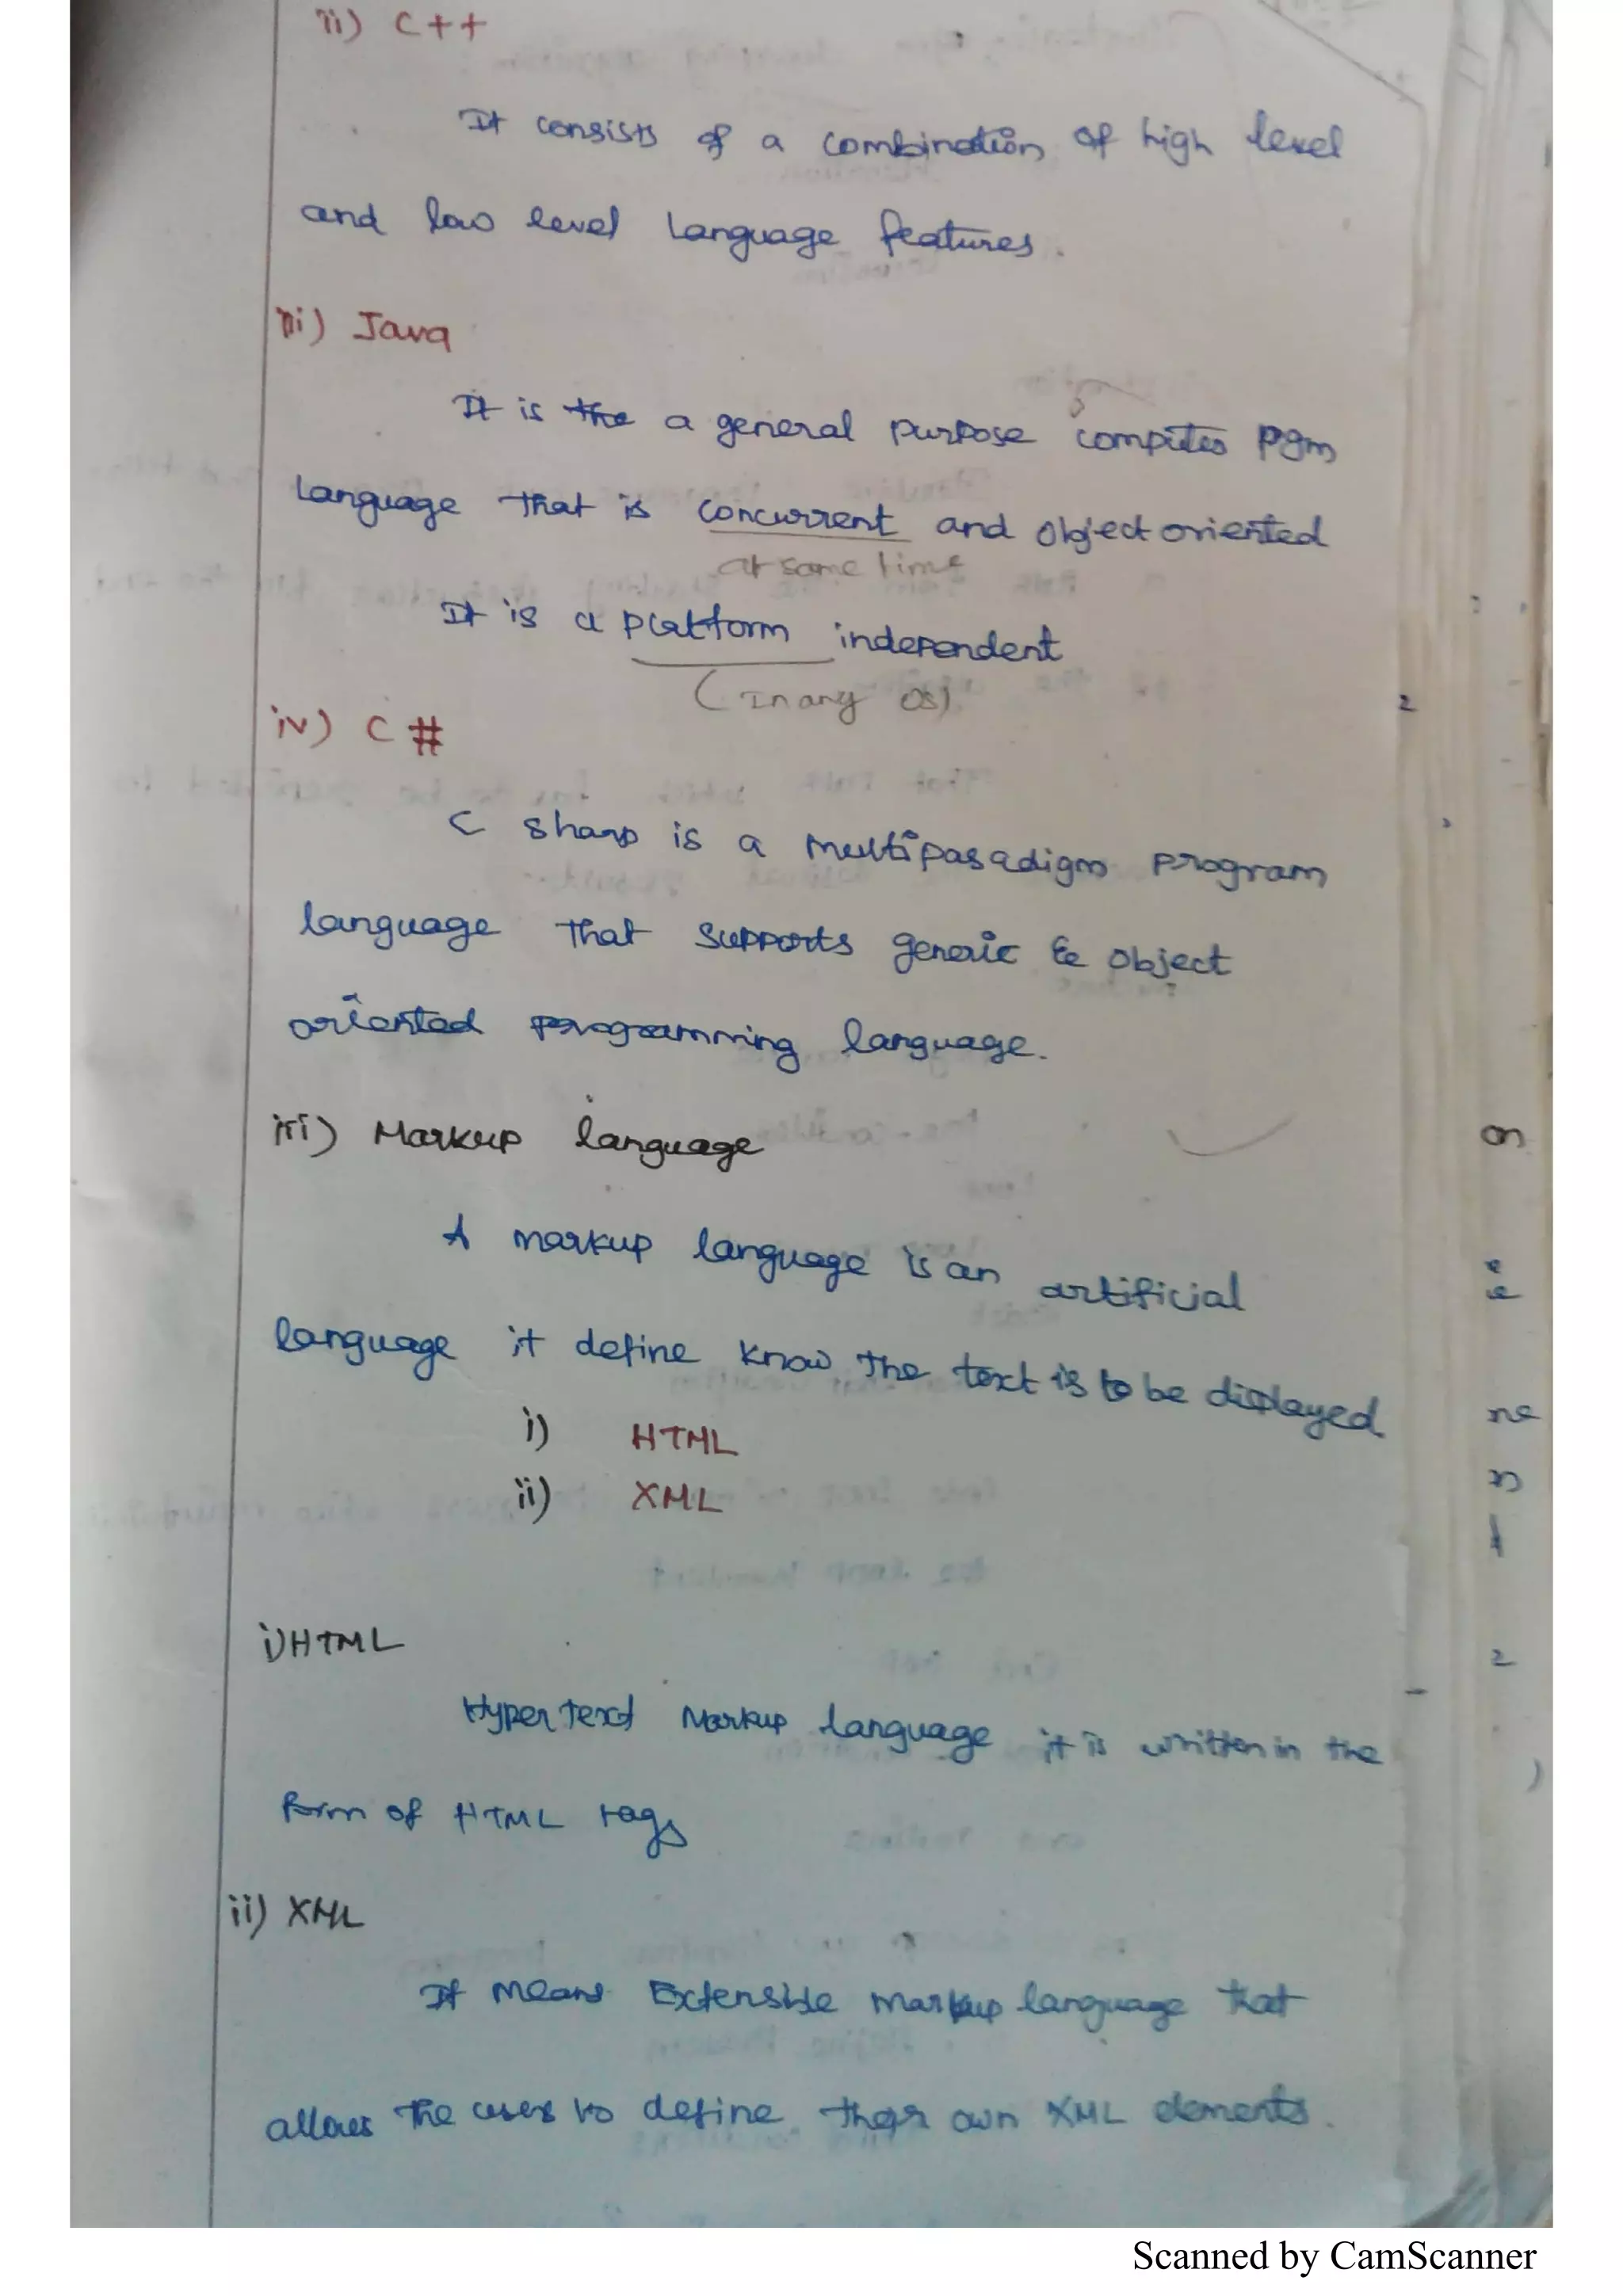 ii) C++
It consists of a combination of high level
and low level Language features.
iii) Java
It is the a general purpose computer Pgm
Language that is concurrent and object oriented
at same time
It is a platform independent
(In any OS)
iv) C #
C sharp is a multiparadigm program
language that supports generic & object
oriented programming language.
iii) Markup language
A markup language is an artificial
language it define know the text is to be displayed
i) HTML
ii) XML
i) HTML
Hyper text Markup language it is written in the
form of HTML tags
ii) XML
It means Extensible markup language that
allows the users to define their own XML elements.
Scanned by CamScanner